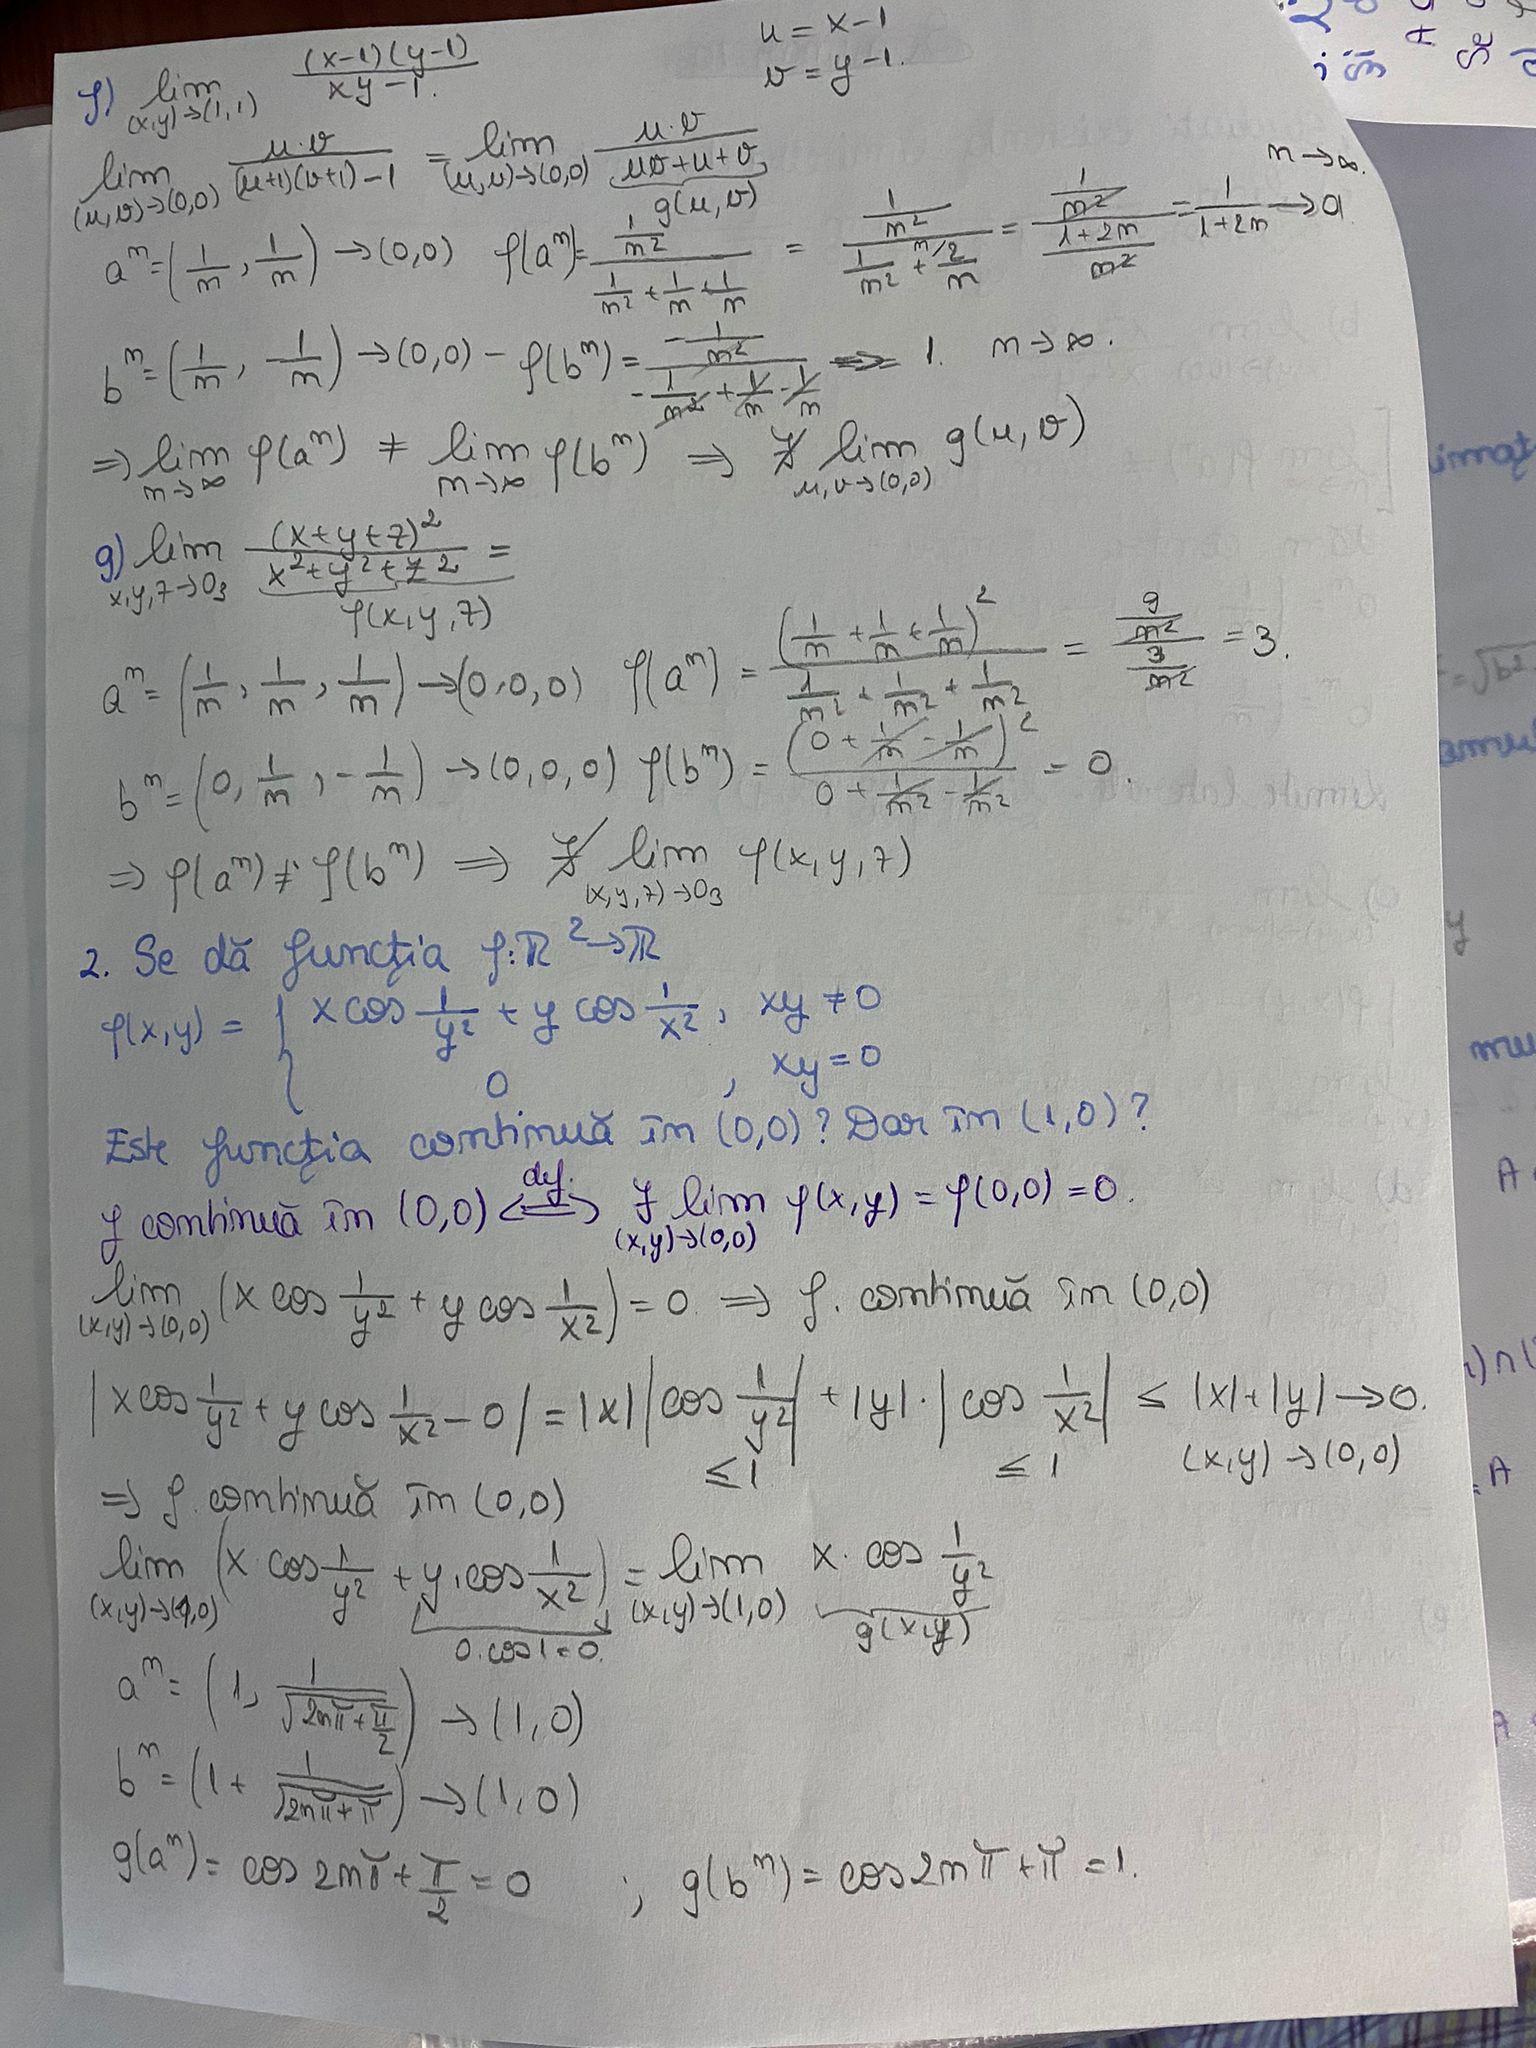 f) lim (x,y)→(1,1) (x-1)(y-1) / xy-1. u = x-1
v = y-1.
lim (u,v)→(0,0) u·v / (u+1)(v+1)-1 = lim (u,v)→(0,0) u·v / uv+u+v g(u,v)
n→∞.
a^n = (1/n, 1/n) → (0,0) f(a^n) = 1/n² / 1/n² + 1/n + 1/n = 1/n² / 1/n² + n/2/n = 1/n² / 1+2n/n² = 1/1+2n → 0
b^n = (1/n, -1/n) → (0,0) - f(b^n) = -1/n² / -1/n² + 1/n - 1/n => 1. n→∞.
=> lim n→∞ f(a^n) ≠ lim n→∞ f(b^n) => ∄ lim u,v→(0,0) g(u,v)
g) lim x,y,z→0₃ (x+y+z)² / x²+y²+z² =
f(x,y,z)
a^n = (1/n, 1/n, 1/n) → (0,0,0) f(a^n) = (1/n + 1/n + 1/n)² / 1/n² + 1/n² + 1/n² = 9/n² / 3/n² = 3.
b^n = (0, 1/n, -1/n) → (0,0,0) f(b^n) = (0 + 1/n - 1/n)² / 0 + 1/n² - 1/n² = 0.
=> f(a^n) ≠ f(b^n) => ∄ lim (x,y,z)→0₃ f(x,y,z)
2. Se dă funcția f:ℝ²→ℝ
f(x,y) = { x cos 1/y² + y cos 1/x², xy ≠ 0
0 , xy = 0
Este funcția continuă în (0,0)? Dar în (1,0)?
f continuă în (0,0) <=def.=> ∃ lim (x,y)→(0,0) f(x,y) = f(0,0) = 0.
lim (x,y)→(0,0) (x cos 1/y² + y cos 1/x²) = 0. => f. continuă în (0,0)
|x cos 1/y² + y cos 1/x² - 0| = |x| |cos 1/y²| + |y|·|cos 1/x²| ≤ |x|+|y| → 0.
≤1 ≤ 1 (x,y)→(0,0)
=> f. continuă în (0,0)
lim (x,y)→(1,0) (x·cos 1/y² + y·cos 1/x²) = lim (x,y)→(1,0) x·cos 1/y²
0·cos1=0. g(x,y)
a^n = (1, 1/√(2nπ+π/2)) → (1,0)
b^n = (1+ 1/√(2nπ+π)) → (1,0)
g(a^n) = cos 2nπ + π/2 = 0 ; g(b^n) = cos 2nπ + π = 1.